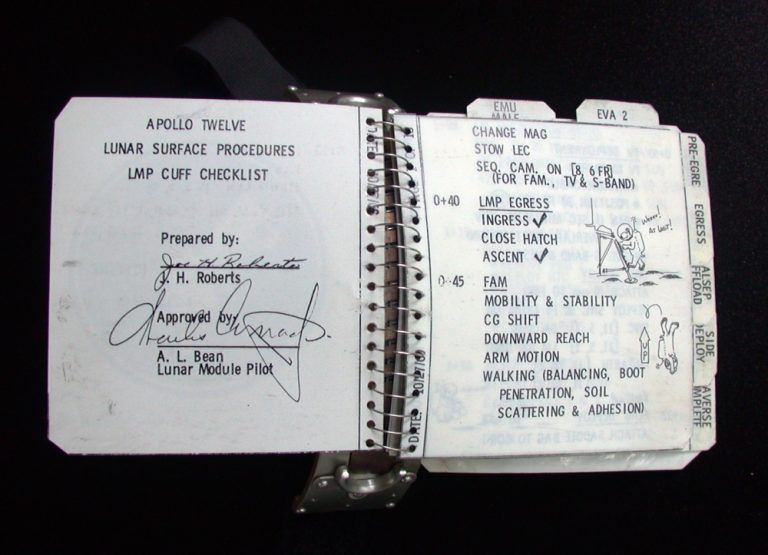 APOLLO TWELVE
LUNAR SURFACE PROCEDURES
LMP CUFF CHECKLIST
Prepared by:
Joe H. Roberts
J. H. Roberts
Approved by:
Charles Conrad Jr.
A. L. Bean
Lunar Module Pilot
DATE:
EMU
EVA 2
CHANGE MAG
STOW LEC
SEQ. CAM. ON [8, 6 FR]
(FOR FAM., TV & S-BAND)
0+40 LMP EGRESS
INGRESS ✓
CLOSE HATCH
ASCENT ✓
Wheee!
At last!
0+45 FAM
MOBILITY & STABILITY
CG SHIFT
DOWNWARD REACH
UP
ARM MOTION
WALKING (BALANCING, BOOT
PENETRATION, SOIL
SCATTERING & ADHESION)
PRE-EGRE
EGRESS
ALSEP
FFLOAD
SIDE
DEPLOY
AVERSE